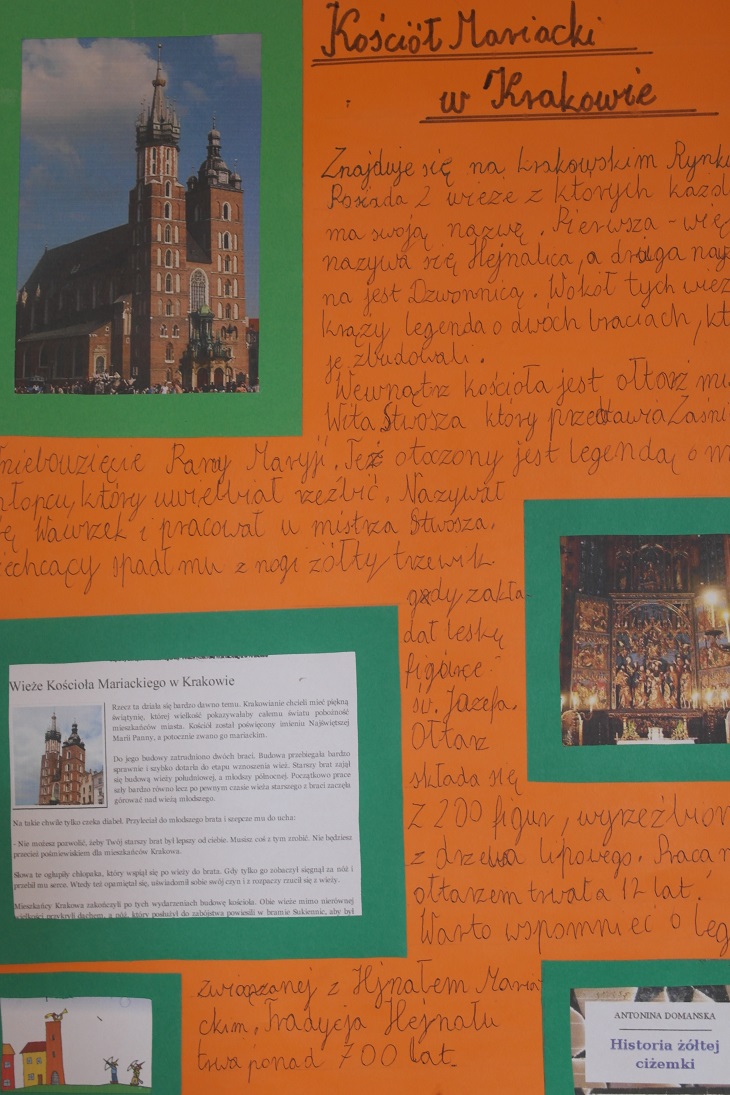 Kościół Mariacki
w Krakowie
Znajduje się na krakowskim Rynku
Posiada 2 wieże z których każd
ma swoją nazwę. Pierwsza - wię
nazywa się Hejnalica, a druga naz
na jest Dzwonnicą. Wokół tych wież
krąży legenda o dwóch braciach, kt
je zbudowali.
Wewnątrz kościoła jest ołtarz mi
Wita Stwosza który przedstawia Zaśni
niebowzięcie Panny Maryji. Też otoczony jest legendą o m
hłopcu, który uwielbiał rzeźbić. Nazywał
ę Wawrzek i pracował u mistrza Stwosza.
iechcący spadł mu z nogi żółty trzewik
gdy zakła-
dał leskę
figórce
św. Józefa.
Ołtarz
składa się
z 200 figur, wyrzeźbion
z drzewa lipowego. Praca n
ołtarzem trwała 12 lat.
Warto wspomnieć o leg
związanej z Hjnałem Maria
ckim. Tradycja Hejnału
trwa ponad 700 lat.
Wieże Kościoła Mariackiego w Krakowie
Rzecz ta działa się bardzo dawno temu. Krakowianie chcieli mieć piękną
świątynię, której wielkość pokazywałaby całemu światu pobożność
mieszkańców miasta. Kościół został poświęcony imieniu Najświętszej
Marii Panny, a potocznie zwano go mariackim.
Do jego budowy zatrudniono dwóch braci. Budowa przebiegała bardzo
sprawnie i szybko dotarła do etapu wznoszenia wież. Starszy brat zajął
się budową wieży południowej, a młodszy północnej. Początkowo prace
szły bardzo równo lecz po pewnym czasie wieża starszego z braci zaczęła
górować nad wieżą młodszego.
Na takie chwile tylko czeka diabeł. Przyleciał do młodszego brata i szepcze mu do ucha:
- Nie możesz pozwolić, żeby Twój starszy brat był lepszy od ciebie. Musisz coś z tym zrobić. Nie będziesz
przecież pośmiewiskiem dla mieszkańców Krakowa.
Słowa te ogłupiły chłopaka, który wspiął się po wieży do brata. Gdy tylko go zobaczył sięgnął za nóż i
przebił mu serce. Wtedy też opamiętał się, uświadomił sobie swój czyn i z rozpaczy rzucił się z wieży.
Mieszkańcy Krakowa zakończyli po tych wydarzeniach budowę kościoła. Obie wieże mimo nierównej
wielkości przykryli dachem, a nóż, który posłużył do zabójstwa powiesili w bramie Sukiennic, aby był
ANTONINA DOMAŃSKA
Historia żółtej
ciżemki